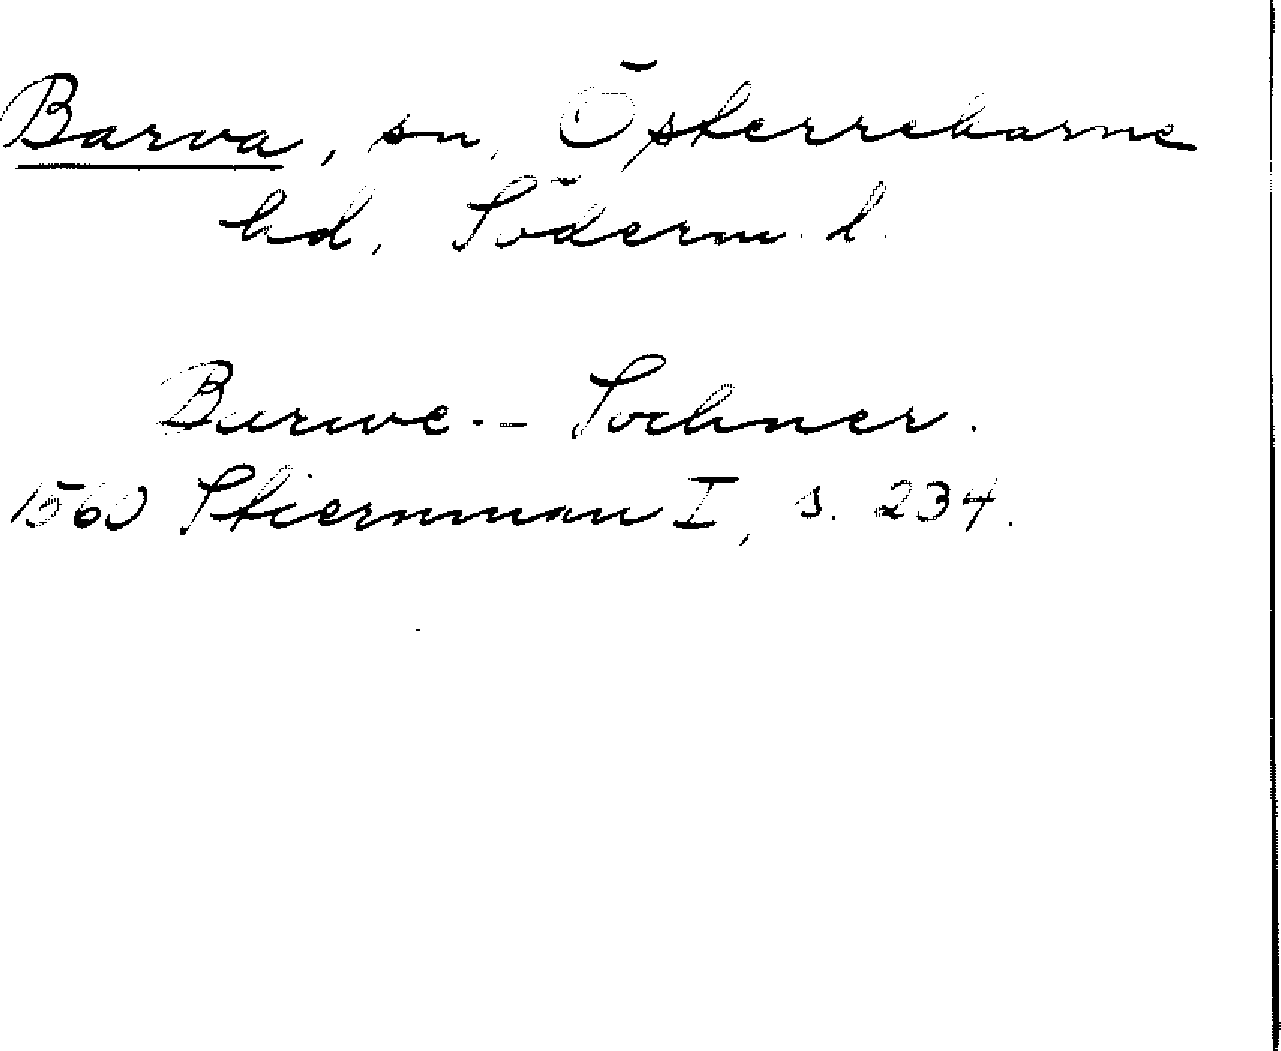 Barva, sn, Österrekarne
hd, Söderm. l.
Burwe.- Sochner.
1560 Stiernman I, s. 234.